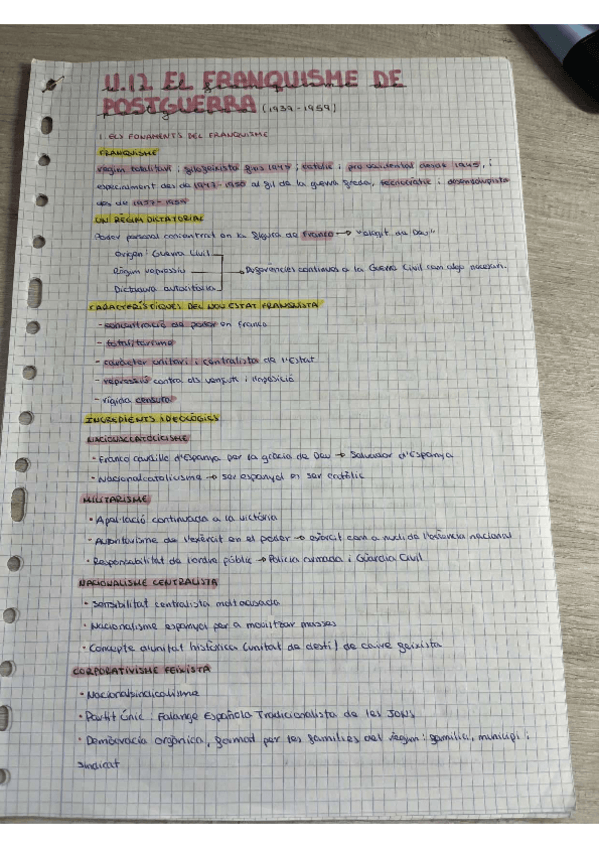 U.12 EL FRANQUISME DE
POSTGUERRA (1939-1959)
1. ELS FONAMENTS DEL FRANQUISME
FRANQUISME
règim totalitari, filofeixista fins 1945; catòlic i pro occidental desde 1945, i
especialment des de 1947-1950 al fil de la guerra freda, tecnocràtic i desenvolupista
des de 1957-1959
UN RÈGIM DICTATORIAL
Poder personal concentrat en la figura de Franco → "elegit de Deu"
Origen: Guerra Civil
Règim repressiu → Referències continues a la Guerra Civil com algo necesari.
Dictadura autoritària
CARACTERÍSTIQUES DEL NOU ESTAT FRANQUISTA
- concentració de poder en Franco
- totalitarisme
- caràcter unitari i centralista de l'Estat
- repressió contra els vençuts i l'oposició
- rígida censura
INGREDIENTS IDEOLÒGICS
NACIONALCATOLICISME
· Franco caudillo d'Espanya per la gràcia de Deu → Salvador d'Espanya
· Nacionalcatolicisme → ser espanyol és ser catòlic
MILITARISME
· Apel·lació continuada a la victòria
· de l'exèrcit en el poder → exèrcit com a nucli de l'essència nacional
· Responsabilitat de l'ordre públic → Policia armada i Guardia Civil
NACIONALISME CENTRALISTA
· Sensibilitat centralista
· Nacionalisme espanyol per a movilitzar masses
· Concepte d'unitat històrica (unitat de destí) de caire feixista
CORPORATIVISME FEIXISTA
· Nacionalsindicalisme
· Partit únic: Falange Española Tradicionalista de les JONS
· Democràcia orgànica, formad per les families del règim: familia, municipi i
sindicat